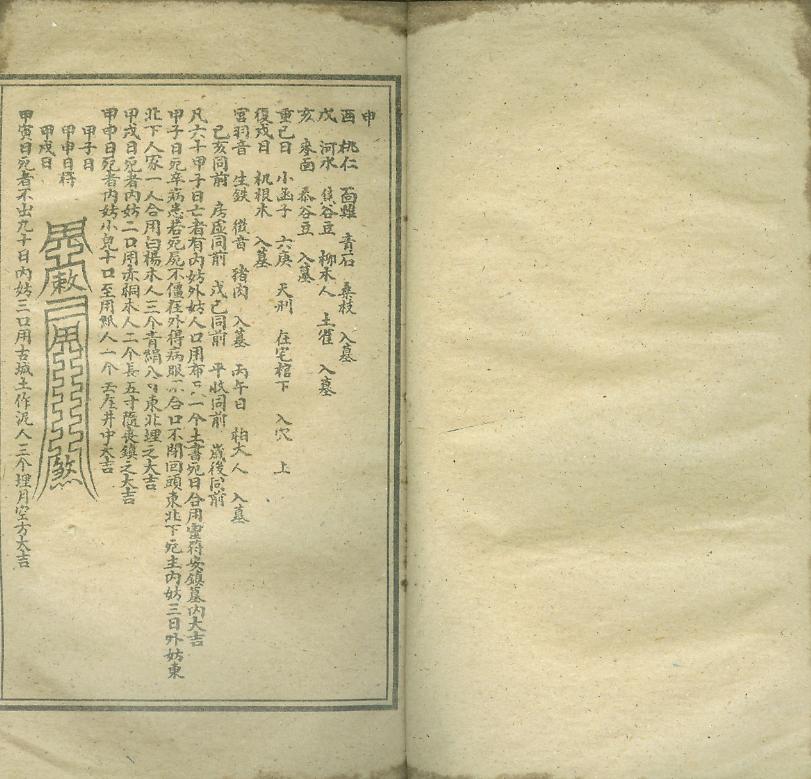 申
酉 桃仁 面雞 青石 桑枝 入墓
戌 河水 焦谷豆 柳木人 土雀 入墓
亥 麥面 黍谷豆 入墓
重巳日 小函子 六庚 天刑 住宅棺下 入穴 上
復戌日 机根木 入墓
宮羽音 生鉄 徴音 猪肉 入墓 丙午日 柏大人 入墓
己亥同前 房虛同前 戊己同前 平收同前 歲後同前
凡六十甲子日亡者有內妨外妨人口用布 一个土書死日合用靈符安鎮墓內大吉
甲子日死卒病患若死屍不僵在外得病眼不合口不閉回頭東北下死主內妨三日外妨東
北下人家一人合用白楊木人三个青絹八寸東北埋之大吉
甲戌日死者內妨二口用赤銅木人二个長五寸隨喪鎮之大吉
甲申日死者內妨小鬼十口至用 人一个丟在井中大吉
甲子日
甲申日符
甲戌日
敕
煞
甲寅日死者不出九十日內妨三口用古城土作泥人三个埋月空方大吉